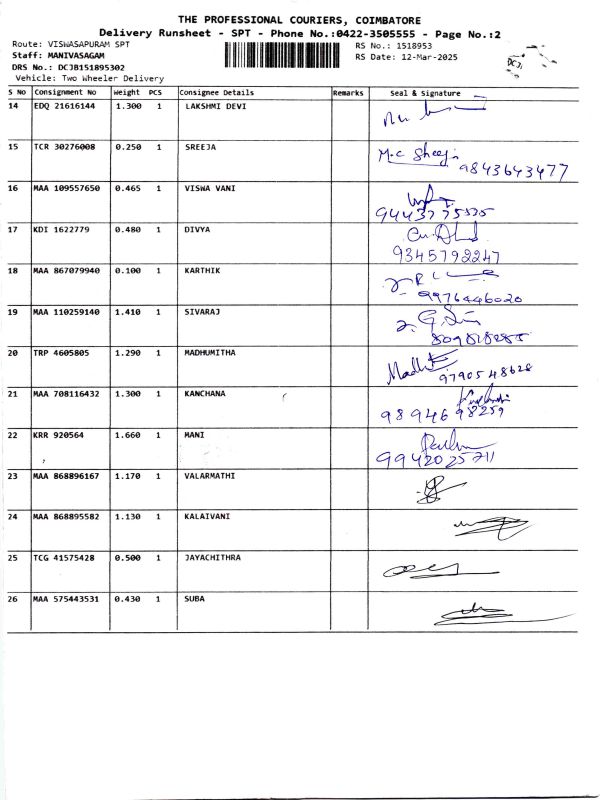 THE PROFESSIONAL COURIERS, COIMBATORE
Delivery Runsheet - SPT - Phone No.:0422-3505555 - Page No.:2
Route: VISWASAPURAM SPT
RS No.: 1518953
Staff: MANIVASAGAM
RS Date: 12-Mar-2025
DRS No.: DCJB151895302
Vehicle: Two Wheeler Delivery
S No Consignment No Weight PCS Consignee Details Remarks Seal & Signature
14 EDQ 21616144 1.300 1 LAKSHMI DEVI
15 TCR 30276008 0.250 1 SREEJA M.C Sheeja
9843643477
16 MAA 109557650 0.465 1 VISWA VANI
17 KDI 1622779 0.480 1 DIVYA
9345792247
18 MAA 867079940 0.100 1 KARTHIK
9976446020
19 MAA 110259140 1.410 1 SIVARAJ
20 TRP 4605805 1.290 1 MADHUMITHA
9790548628
21 MAA 708116432 1.300 1 KANCHANA
9894698259
22 KRR 920564 1.660 1 MANI
23 MAA 868896167 1.170 1 VALARMATHI
24 MAA 868895582 1.130 1 KALAIVANI
25 TCG 41575428 0.500 1 JAYACHITHRA
26 MAA 575443531 0.430 1 SUBA